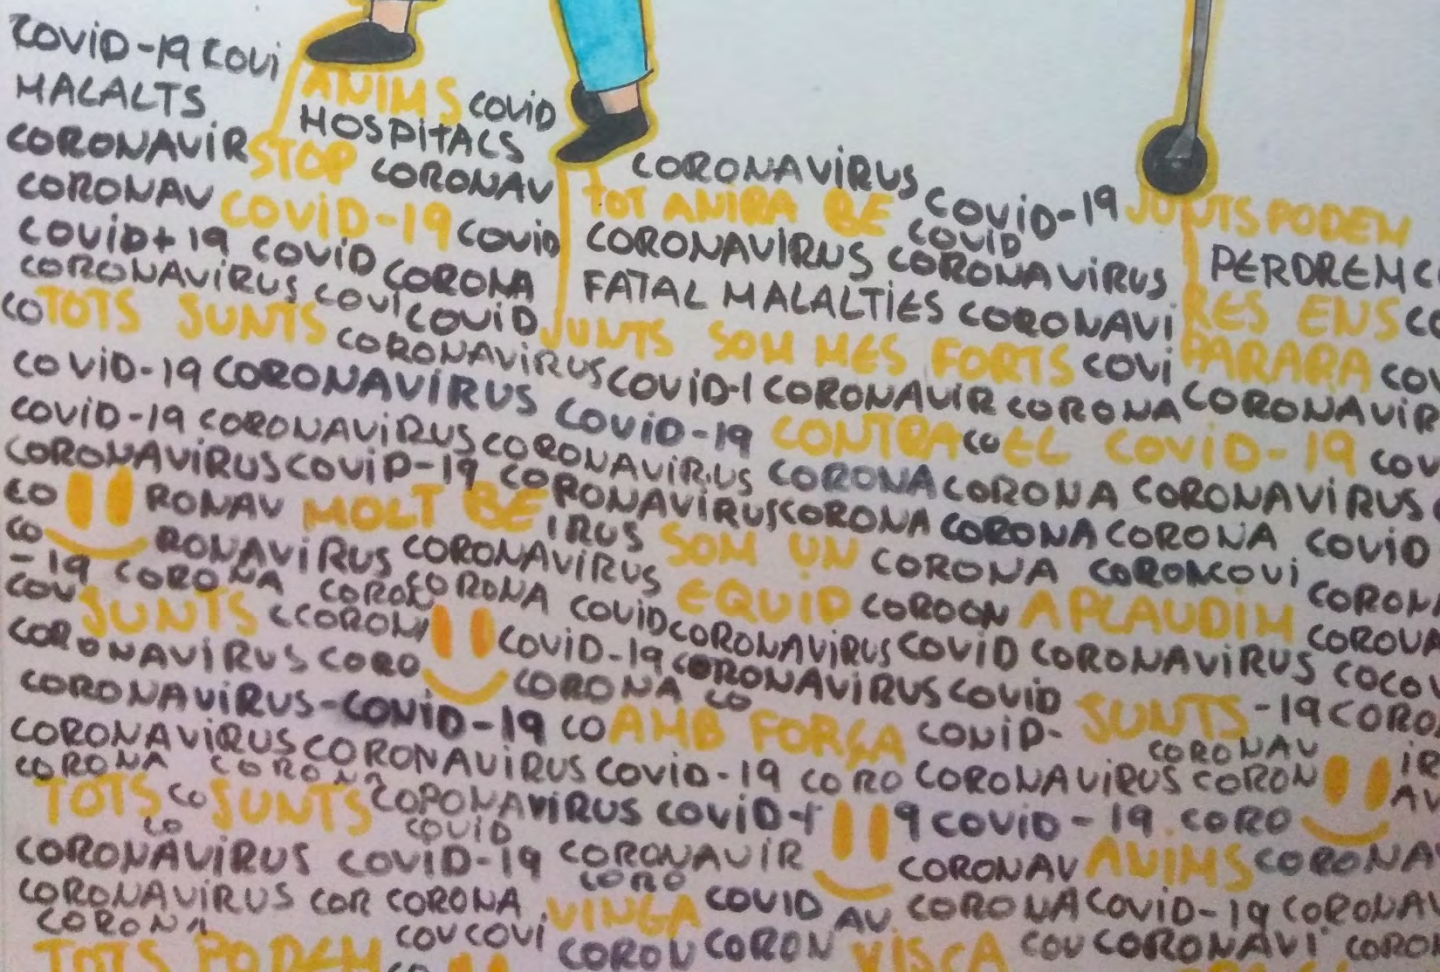 COVID-19 COVI
MALALTS ANIMS COVID
HOSPITALS
CORONAVIR STOP CORONAV CORONAVIRUS
CORONAV COVID-19 COVID TOT ANIRA BE COVID-19 JUNTS PODEM
COVID+19 COVID CORONA CORONAVIRUS COVID CORONAVIRUS PERDREM C
CORONAVIRUS COVI COVID FATAL MALALTIES CORONAVI RES ENS CO
CO TOTS JUNTS CORONAVIRUS JUNTS SOM MES FORTS COVI PARARA COV
COVID-19 CORONAVIRUS COVID-1 CORONAVIR CORONA CORONAVIR
COVID-19 CORONAVIRUS COVID-19 CONTRA CO EL COVID-19 COV
CORONAVIRUS COVID-19 CORONAVIRUS CORONA CORONA CORONAVIRUS
CO RONAV MOLT BE CORONAVIRUS CORONA CORONA CORONA COVID
CO RONAVIRUS CORONAVIRUS IRUS SOM UN CORONA COVI
-19 CORONA CORONA COVID EQUID COROON APLAUDIM CORONA
COV JUNTS CCORONI COVID-19 CORONAVIRUS COVID CORONAVIRUS COROVA
CORONAVIRUS CORO CORONA CO CORONAVIRUS COVID JUNTS COCOV
CORONAVIRUS-COVID-19 CO AMB FORÇA COVID- -19 CORO
CORONAVIRUS CORONAVIRUS COVID-19 CORO CORONAVIRUS CORONAV CORON IR
CORONA CORONA
TOTS CO JUNTS COPONAVIRUS COVID-1 9 COVID-19 CORO AV
CO COVID
CORONAVIRUS COVID-19 CORONAVIR CORONAV ANIMS CORONA
CORONAVIRUS COR CORONA CORO VINGA COVID AV CORONA COVID-19 CORONAV
CORONA COV COVI COROV CORON VISCA COV CORONAVI CORON
TOTS PODEM CO